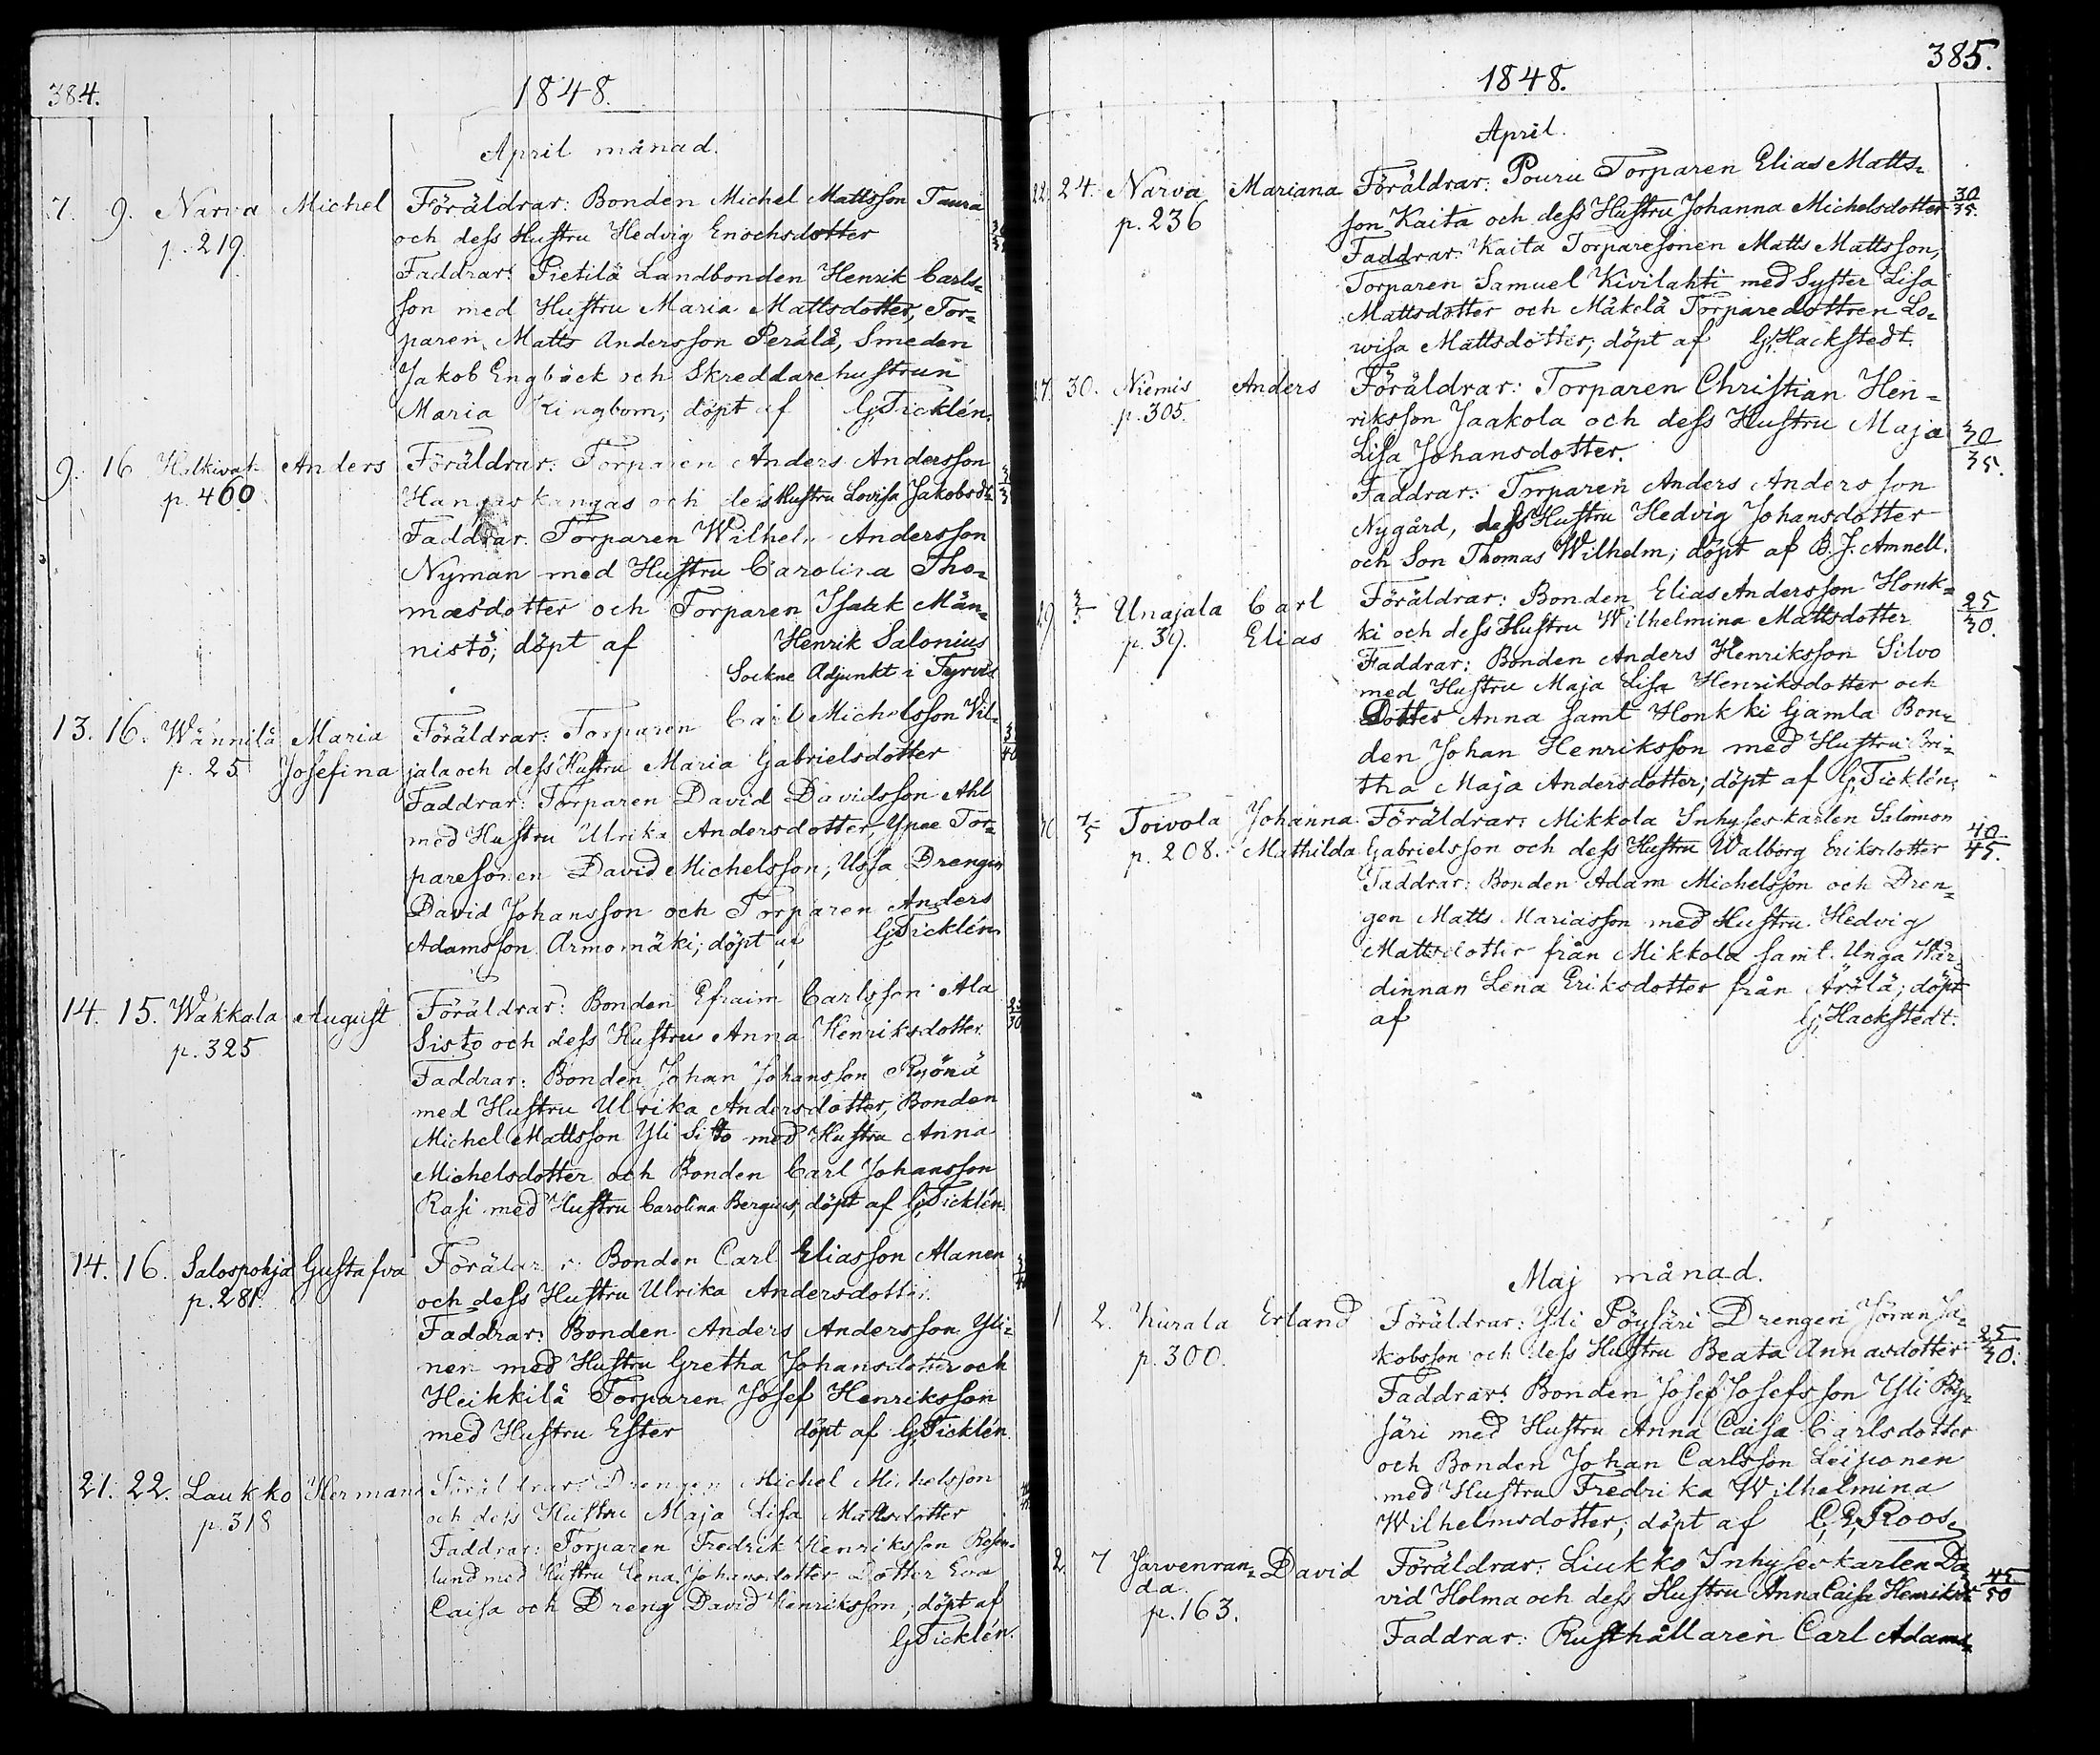 384.
1848.
April månad.
7. 9. Narva Michel Föräldrar: Bonden Michel Mattsson Taura
p. 219. och dess Hustru Hedvig Enochsdotter
Faddrar: Pietilä Landbonden Henrik Carls=
son med Hustru Maria Mattsdotter, Tor=
paren Matts Andersson Perälä, Smeden
Jakob Engbäck och Skreddare hustrun
Maria Ringbom; döpt af G, Ticklén.
9. 16 Anders Föräldrar: Torparen Anders Andersson
p. 460 Hangaskangas och dess Hustru Lovisa Jakobsdr
Faddrar. Torparen Wilhelm Andersson
Nyman med Hustru Carolina Tho=
masdotter och Torparen Isaak Män=
nistö; döpt af Henrik Salonius
Sockne Adjunkt i Tyrvis
13. 16. Wännilä Maria Föräldrar: Torparen Carl Michelsson Vil=
p. 25 Josefina jala och dess Hustru Maria Gabrielsdotter
Faddrar: Torparen David Davidsson Ahl
med Hustru Ulrika Andersdotter, Ypee Tor=
paresonen David Michelsson, Ussa Drengen
David Johansson och Torparen Anders
Adamsson Armomäki; döpt af G, Ticklén
14. 15. Wakkala August Föräldrar: Bonden Efraim Carlsson Ala 25
p. 325 Sisto och dess Hustru Anna Henriksdotter. 30
Faddrar: Bonden Johan Johansson Ryönä
med Hustru Ulrika Andersdotter, Bonden
Michel Mattsson Yli Sisto med Hustru Anna
Michelsdotter och Bonden Carl Johansson
Rasi med Hustru Carolina Bergius; döpt af G, Ticklén.
14. 16. Salospohja Gustafva Föräldrar: Bonden Carl Eliasson Alanen
p. 281. och dess Hustru Ulrika Andersdotter.
Faddrar: Bonden Anders Andersson Yli=
nen med Hustru Gretha Johansdotter och
Heikkilä Torparen Josef Henriksson
med Hustru Ester döpt af G, Ticklén.
21. 22. Laukko Herman Föräldrar: Drengen Michel Michelsson
p. 318 och dess Hustru Maja Lisa Mattsdotter
Faddrar: Torparen Fredrik Henriksson Rosen=
lund med Hustru Lena Johansdotter Dotter Eva
Caisa och Dreng David Henriksson; döpt af
G, Ticklén.
385.
1848.
April.
22. 24. Narva Mariana Föräldrar: Pouru Torparen Elias Matts=
p. 236 son Kaita och dess Hustru Johanna Michelsdotter 30/35.
Faddrar: Kaita Torparesonen Matts Mattsson,
Torparen Samuel Kivilahti med Syster Lisa
Mattsdotter och Mäkelä Torparedottren Lo=
wisa Mattsdotter; döpt af G, Hackstedt.
27. 30. Niemis Anders Föräldrar: Torparen Christian Hen=
p. 305. riksson Jaakola och dess Hustru Maja 30
Lisa Johansdotter. 35.
Faddrar: Torparen Anders Andersson
Nygård, dess Hustru Hedvig Johansdotter
och Son Thomas Wilhelm; döpt af B. J. Amnell.
29 3/5 Unajala Carl Föräldrar: Bonden Elias Andersson Honk= 25
p. 39. Elias ki och dess Hustru Wilhelmina Mattsdotter 30.
Faddrar: Bonden Anders Henriksson Silvo
med Hustru Maja Lisa Henriksdotter och
Dotter Anna samt Honkki Gamla Bon=
den Johan Henriksson med Hustru Bri=
tha Maja Andersdotter; döpt af G, Ticklén.
7/5 Toivola Johanna Föräldrar: Mikkola Inhyseskarlen Salomon 40
p. 208. Mathilda Gabrielsson och dess Hustru Walborg Eriksdotter 45.
Faddrar: Bonden Adam Michelsson och Dren=
gen Matts Mariasson med Hustru Hedvig
Mattsdotter från Mikkola samt Unga Wär=
dinnan Lena Eriksdotter från Ärölä; döpt
af G, Hackstedt.
Maj månad.
1 2. Kurala Erland Föräldrar: Yli Pöysäri Drengen Jöran Ja= 25
p. 300. kobsson och dess Hustru Beata Annasdotter 30.
Faddrar: Bonden Josef Josefsson Yli Pöy=
säri med Hustru Anna Caisa Carlsdotter
och Bonden Johan Carlsson Leiponen
med Hustru Fredrika Wilhelmina
Wilhelmsdotter; döpt af C, G, Roos.
2. 7 Jarvenran= David Föräldrar: Liukko Inhyseskarlen Da= 45
da vid Holma och dess Hustru Anna Caisa Henriksdr 50
p. 163. Faddrar: Rusthållaren Carl Adams=